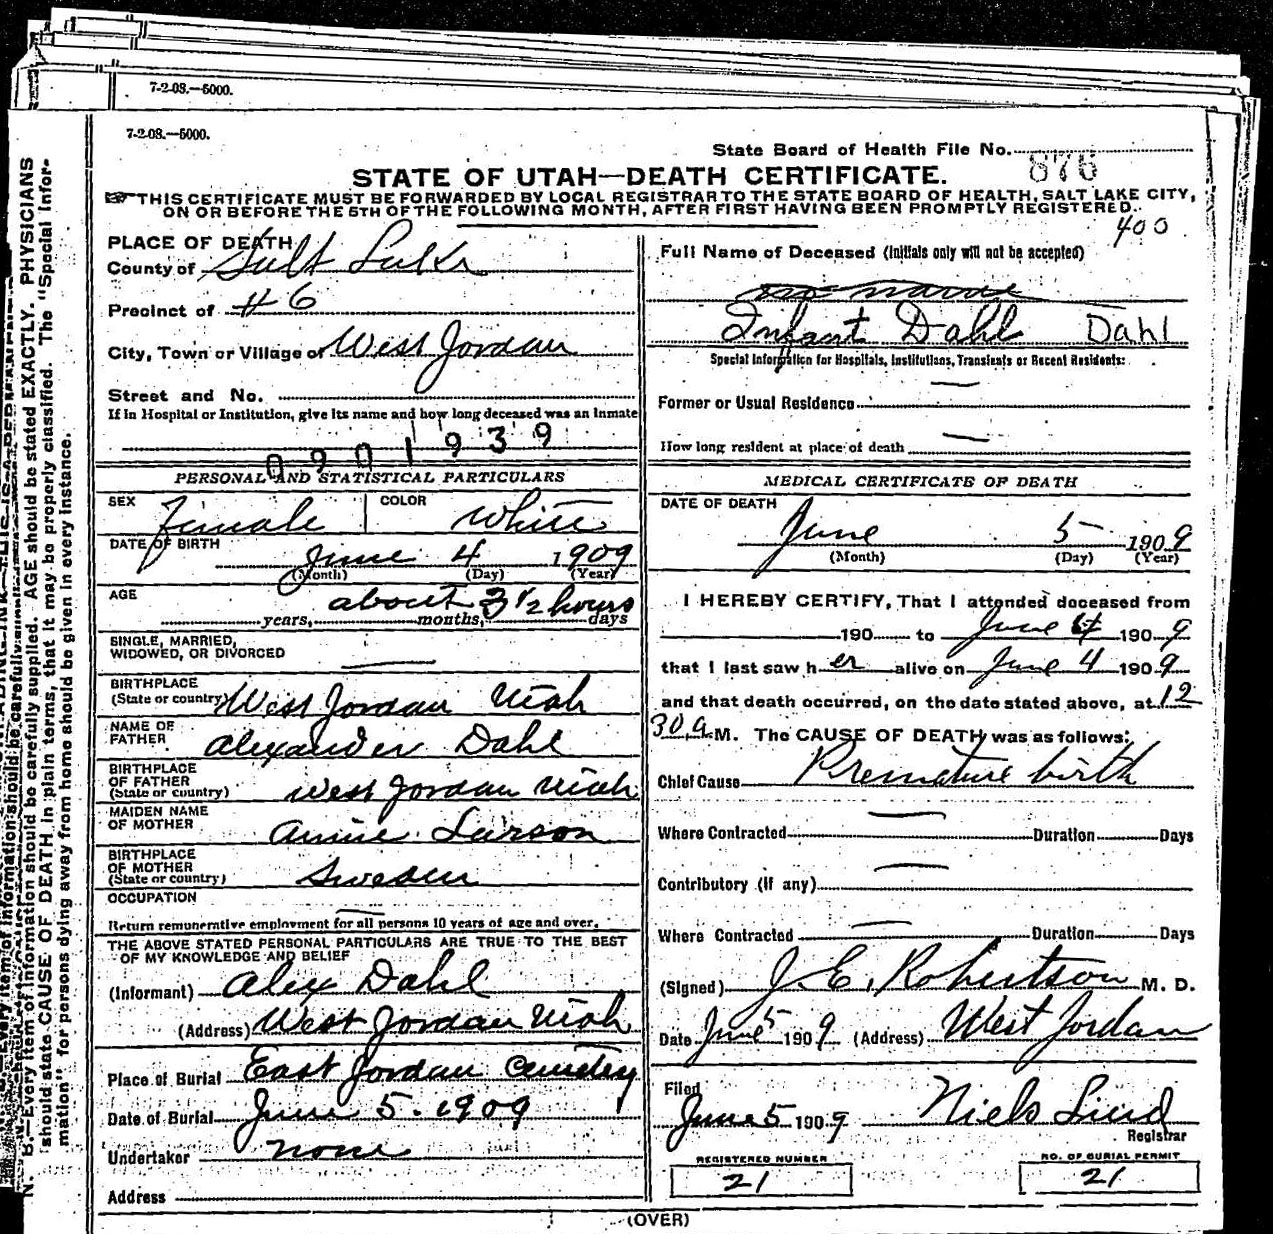 7-2-08.—5000.
7-2-08.—5000.
State Board of Health File No. 876
STATE OF UTAH—DEATH CERTIFICATE.
THIS CERTIFICATE MUST BE FORWARDED BY LOCAL REGISTRAR TO THE STATE BOARD OF HEALTH, SALT LAKE CITY,
ON OR BEFORE THE 5TH OF THE FOLLOWING MONTH, AFTER FIRST HAVING BEEN PROMPTLY REGISTERED.
400
PLACE OF DEATH
County of Salt Lake
Precinct of #6
City, Town or Village of West Jordan
Street and No.
If in Hospital or Institution, give its name and how long deceased was an inmate
0901939
PERSONAL AND STATISTICAL PARTICULARS
SEX Female COLOR White
DATE OF BIRTH
June 4 1909
(Month) (Day) (Year)
AGE about 3 1/2 hours
years, months, days
SINGLE, MARRIED,
WIDOWED, OR DIVORCED
BIRTHPLACE
(State or country) West Jordan Utah
NAME OF
FATHER Alexander Dahl
BIRTHPLACE
OF FATHER
(State or country) West Jordan Utah
MAIDEN NAME
OF MOTHER Annie Larson
BIRTHPLACE
OF MOTHER
(State or country) Sweden
OCCUPATION
Return remunerative employment for all persons 10 years of age and over.
THE ABOVE STATED PERSONAL PARTICULARS ARE TRUE TO THE BEST
OF MY KNOWLEDGE AND BELIEF
(Informant) Alex Dahl
(Address) West Jordan Utah
Place of Burial East Jordan Cemetery
Date of Burial June 5. 1909
Undertaker none
Address
Full Name of Deceased (Initials only will not be accepted)
no name
Infant Dahl Dahl
Special Information for Hospitals, Institutions, Transients or Recent Residents:
Former or Usual Residence
How long resident at place of death
MEDICAL CERTIFICATE OF DEATH
DATE OF DEATH
June 5 1909
(Month) (Day) (Year)
I HEREBY CERTIFY, That I attended deceased from
190 to June 4 1909
that I last saw her alive on June 4 1909
and that death occurred, on the date stated above, at 12
30 a M. The CAUSE OF DEATH was as follows:
Chief Cause Premature birth
Where Contracted Duration Days
Contributory (if any)
Where Contracted Duration Days
(Signed) J. E. Robertson M. D.
Date June 5 1909 (Address) West Jordan
Filed
June 5 1909 Niels Lind
Registrar
REGISTERED NUMBER
21
NO. OF BURIAL PERMIT
21
(OVER)
N. B.—Every item of information should be carefully supplied. AGE should be stated EXACTLY. PHYSICIANS
should state CAUSE OF DEATH in plain terms, that it may be properly classified. The "Special Infor-
mation" for persons dying away from home should be given in every instance.